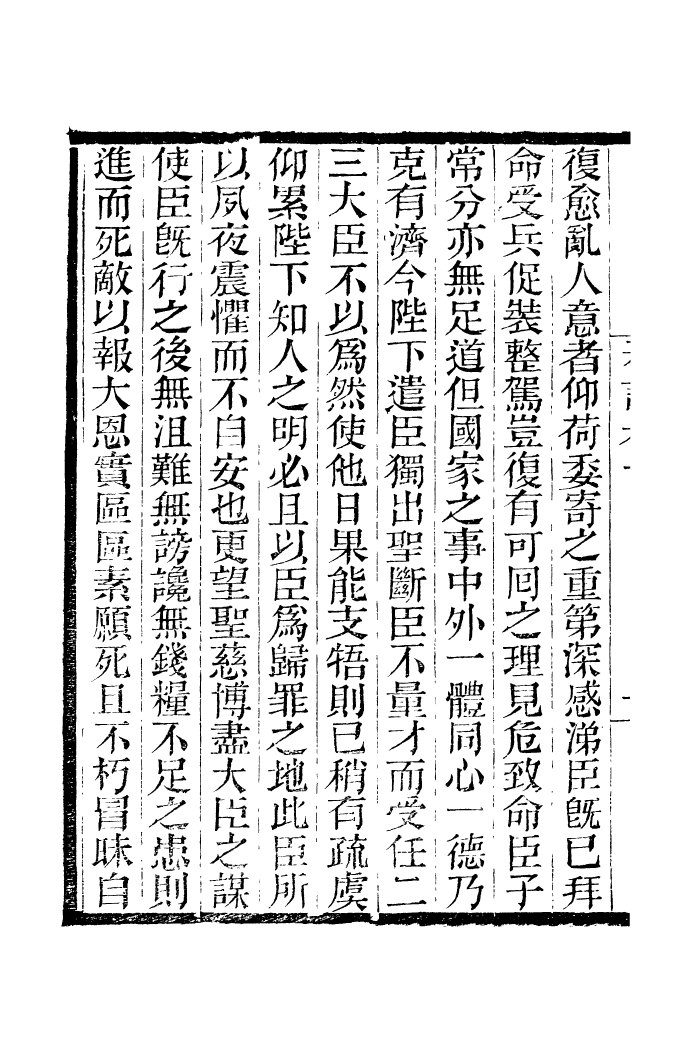 復愈亂人意者仰荷委寄之重第深感涕臣旣已拜
命受兵促裝整駕豈復有可回之理見危致命臣子
常分亦無足道但國家之事中外一體同心一德乃
克有濟今陛下遣臣獨出聖斷臣不量才而受任二
三大臣不以爲然使他日果能支牾則已稍有疏虞
仰累陛下知人之明必且以臣爲歸罪之地此臣所
以夙夜震懼而不自安也更望聖慈博盡大臣之謀
使臣旣行之後無沮難無謗讒無錢糧不足之患則
進而死敵以報大恩實區區素願死且不朽冒昧自